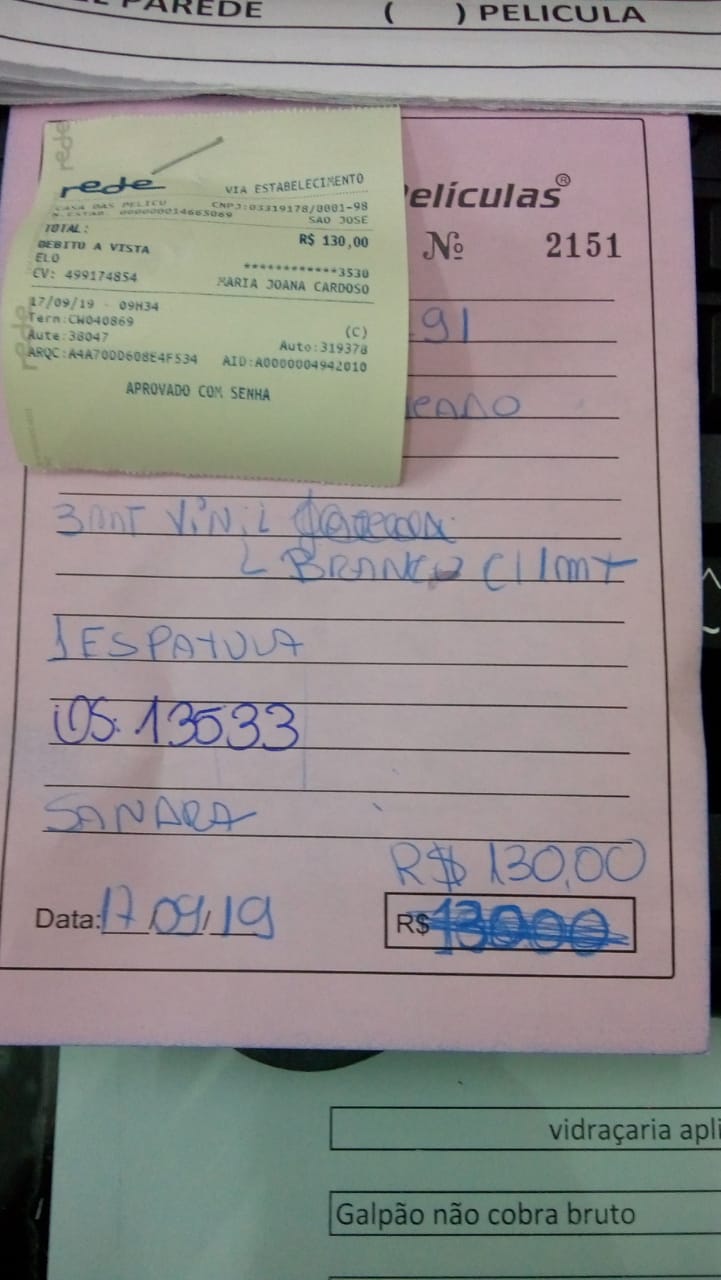 EL PAREDE ( ) PELICULA
rede
VIA ESTABELECIMENTO
CASA DAS PELICU CNPJ:03319178/0001-98
N.ESTAB. 000000014665069 SAO JOSE
TOTAL: R$ 130,00
DEBITO A VISTA
ELO ************3530
CV: 499174854 MARIA JOANA CARDOSO
17/09/19 - 09H34
Term:CW040869 (C)
Aute:38047 Auto:319378
ARQC:A4A70DD608E4F534 AID:A0000004942010
APROVADO COM SENHA
elículas®
Nº 2151
91
3 MT VINIL
BRANCO C/1MT
1 ESPATULA
OS. 13533
SANARA
R$ 130,00
Data: 17/09/19
R$ 13000
vidraçaria apli
Galpão não cobra bruto